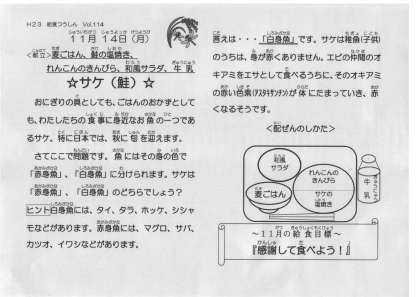 H23 給食つうしん Vol.114
11月14日(月)
＜献立＞麦ごはん、鮭の塩焼き、
れんこんのきんぴら、和風サラダ、牛乳
☆サケ（鮭）☆
おにぎりの具としても、ごはんのおかずとして
も、わたしたちの食事に身近なお魚の一つであ
るサケ。特に日本では、秋に旬を迎えます。
さてここで問題です。魚にはその身の色で
「赤身魚」、「白身魚」に分けられます。サケは
「赤身魚」、「白身魚」のどちらでしょう？
ヒント白身魚には、タイ、タラ、ホッケ、シシャ
モなどがあります。赤身魚には、マグロ、サバ、
カツオ、イワシなどがあります。
答えは・・・「白身魚」です。サケは稚魚(子供)
のうちは、身が赤くありません。エビの仲間のオ
キアミをエサとして食べるうちに、そのオキアミ
の赤い色素(アスタキサンチン)が体にたまっていき、赤
くなるそうです。
＜配ぜんのしかた＞
和風
サラダ
れんこんの
きんぴら
麦ごはん
サケの
塩焼き
牛乳
～11月の給食目標～
『感謝して食べよう！』